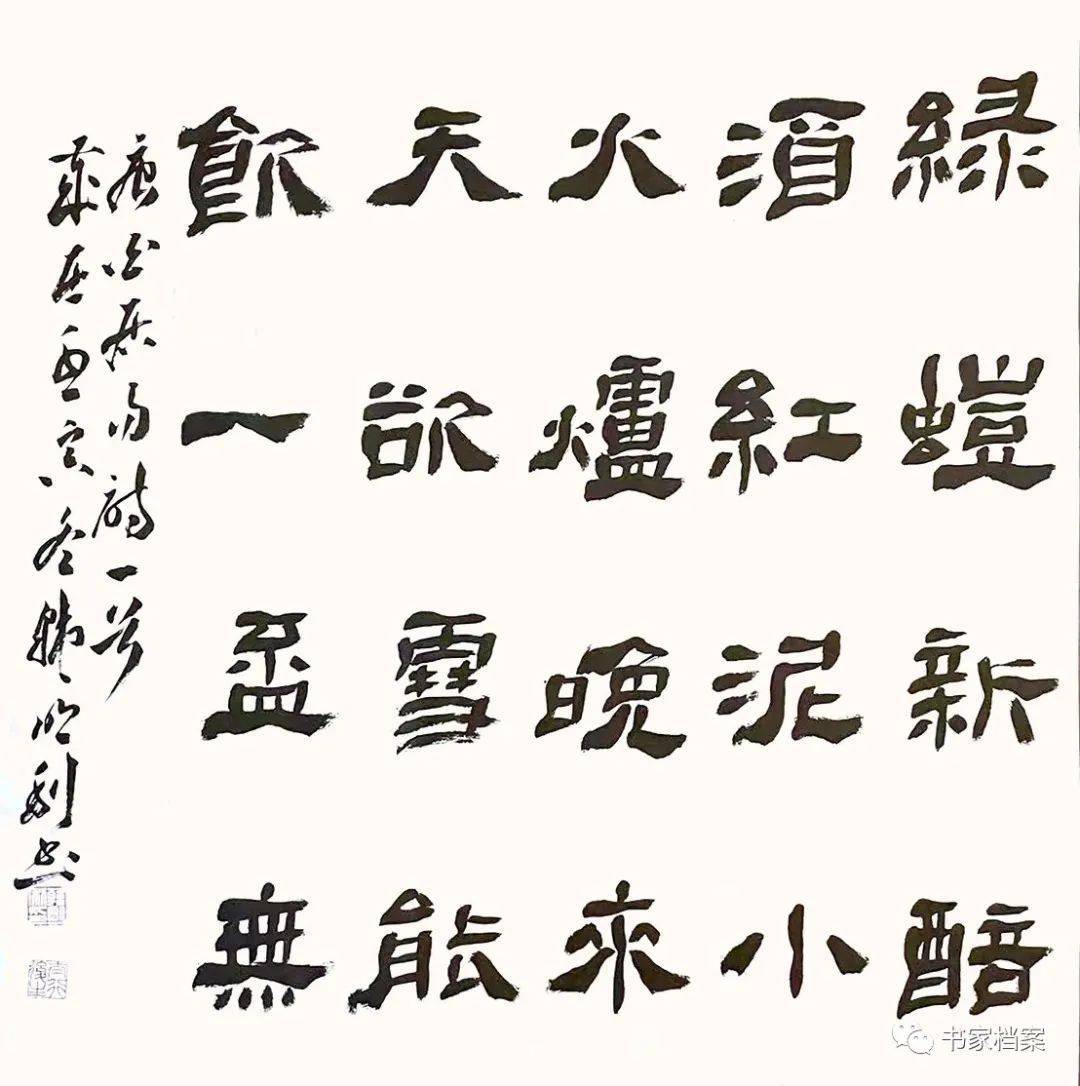 綠螘新醅
酒紅泥小
火爐晚來
天欲雪能
飲一盃無
唐白居易詩一首
歲在壬寅冬韓明利書
书家档案